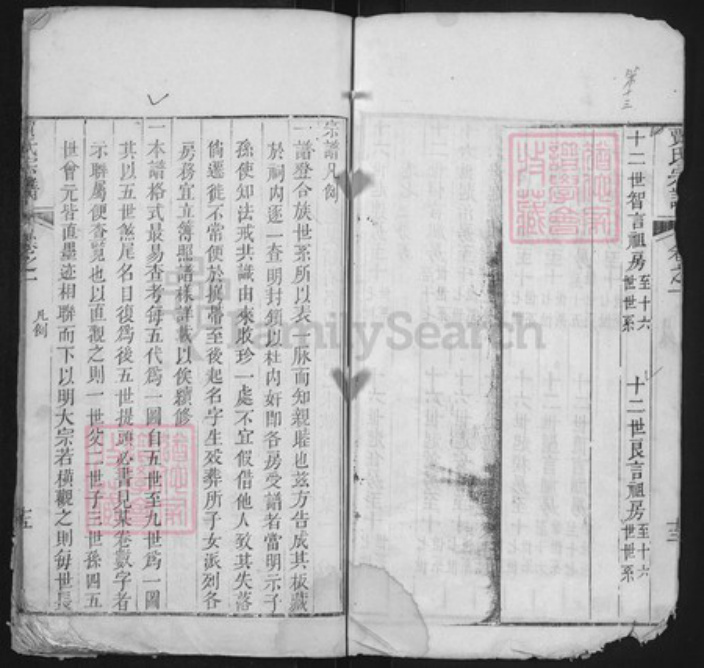 十二世智言祖房至十六世世系
十二世良言祖房至十六世世系
卷之一
十三
第十三
宗譜凡例
一譜登合族世系所以表一脉而知親睦也茲方告成其板藏
於祠內逐一查明封鎖以杜內奸即各房受譜者當明示子
孫使知法戒共識由來收珍一處不宜假借他人致其失落
倘遷徙不常便於攜帶至後起名字生歿葬所子女派列各
房務宜立簿照譜樣詳載以俟續修
一本譜格式最易查考每五代爲一圖自五世至九世爲一圖
其以五世煞尾名目復爲後五世提頭必書見某卷數字者
示聯屬便查覽也以直觀之則一世父二世子三世孫四五
世會元皆直墨迹相聯而下以明大宗若橫觀之則每世長
凡例
FamilySearch